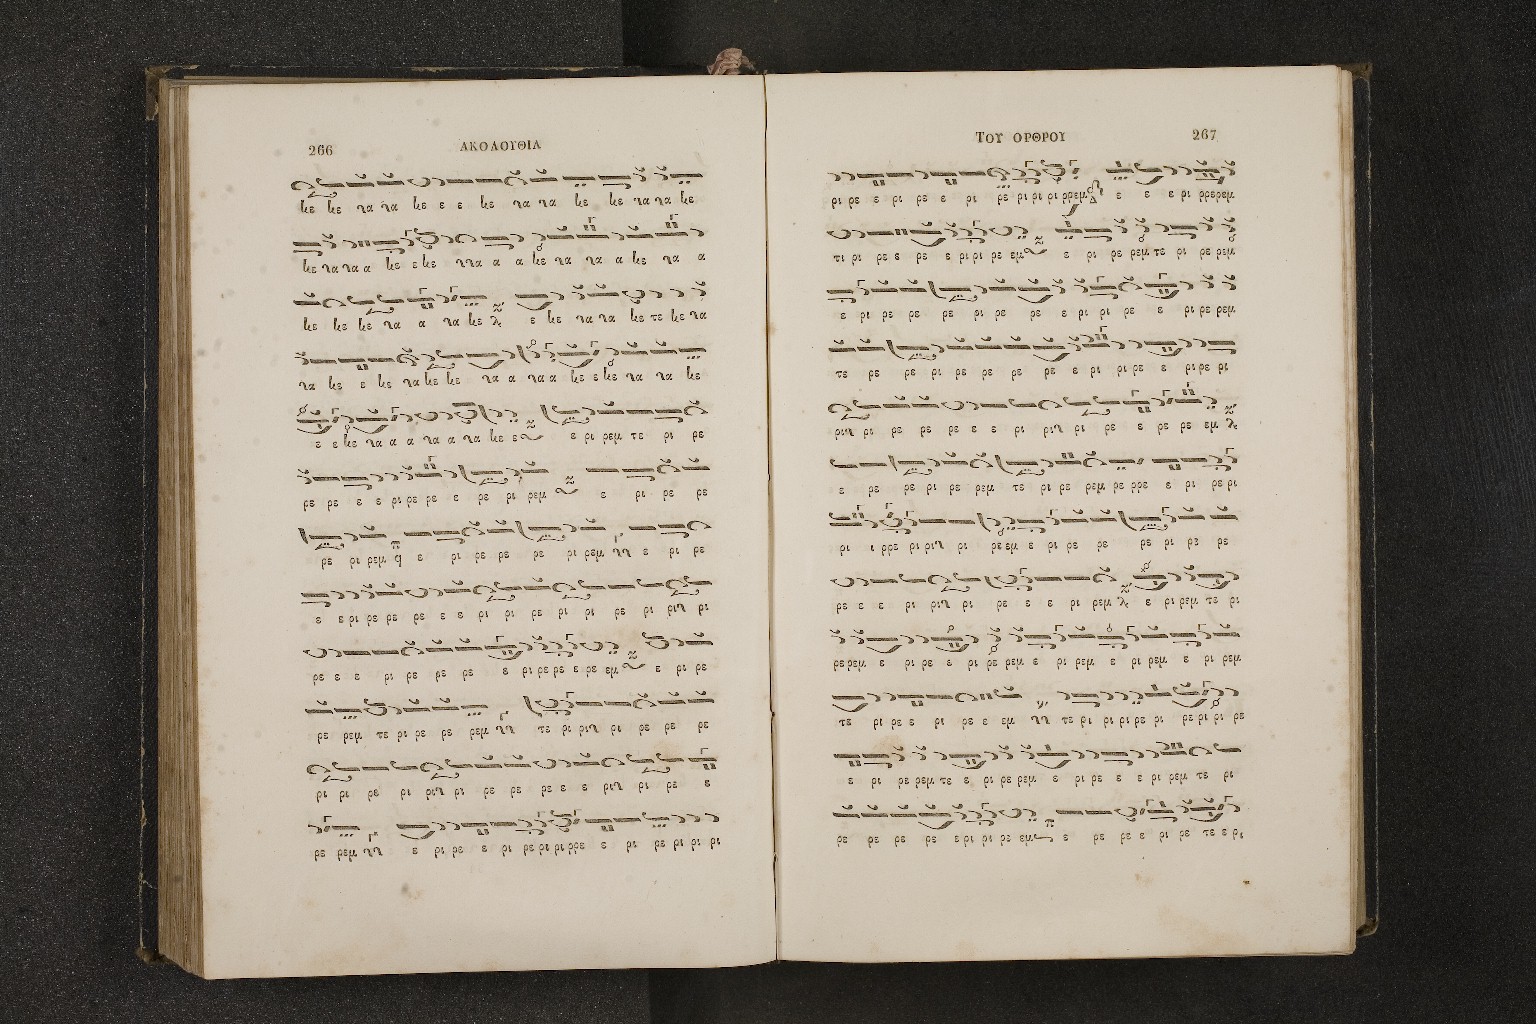 266
ΑΚΟΛΟΥΘΙΑ
ke ke ρα ρα ke ε ε ke ρα ρα ke ke ρα ρα ke
ke ρα ρα α ke ε ke ρρα α α ke ρα ρα α ke ρα α
ke ke ke ρα α ρα ke ε ke ρα ρα ke τε ke ρα
ρα ke ε ke ρα ke ke ρα α ρα α ke ε ke ρα ρα ke
ε ε ke ρα α α ρα α ρα ke ε ε ρι ρεμ τε ρι ρε
ρε ρε ε ε ρι ρε ρε ε ρε ρι ρεμ ε ρι ρε ρε
ρε ρι ρεμ ε ρι ρε ρε ρε ρι ρεμ ε ρι ρε
ε ε ρι ρε ρε ρε ε ε ρι ρι ρε ρι ρι ρε ρι ριρ ρι
ρε ε ε ρι ρε ρε ρε ε ρι ρε ρε ε ρε εμ ε ρι ρε
ρε ρεμ τε ρι ρε ρε ρεμ τε ρι ριρ ρι ρε ρε ρε
ρι ρι ρε ρι ριρ ρι ρε ρε ρε ε ε ριρ ρι ρε ε
ρε ρεμ ε ρι ρε ε ρι ρε ρι ρι ρρε ε ρι ρε ρι ρι ρι
ΤΟΥ ΟΡΘΡΟΥ
267
ρι ρε ε ρι ρε ε ρι ρε ρι ρι ρι ρρεμ ε ε ε ρι ρρερεμ
τι ρι ρε ε ρε ε ρι ρι ρε εμ ε ρι ρε ρεμ τε ρι ρε ρεμ
ε ρι ρε ρε ρε ρι ρε ρε ε ρι ρι ρε ε ρι ρε ρεμ
τε ρε ρε ρι ρε ρε ρε ρε ε ρι ρι ρε ε ρι ρε ρι
ριρ ρι ρε ρε ρε ε ε ρι ριρ ρι ρε ε ρε ρε εμ
ε ρε ρε ρι ρε ρεμ τε ρι ρε ρεμ ρε ρρε ε ρι ρε ρι
ρι ι ρρε ρι ριρ ρι ρε εμ ε ρι ρε ρε ρε ρι ρε ρε
ρε ε ε ρι ριρ ρι ρε ε ε ρι ρεμ ε ρι ρεμ τε ρι
ρε ρεμ ε ρι ρε ε ρι ρε ρεμ ε ρι ρεμ ε ρι ρεμ ε ρι ρεμ
τε ρι ρε ε ρι ρε ε εμ τε ρι ρι ρι ρε ρι ρε ρι ρι ρε
ε ρι ρε ρεμ τε ε ρι ρε ρεμ ε ρι ρε ε ε ρι ρεμ τε ρι
ρε ρε ρε ρε ε ρι ρι ρε εμ ε ρε ρε ε ρι ρε τε ε ρι